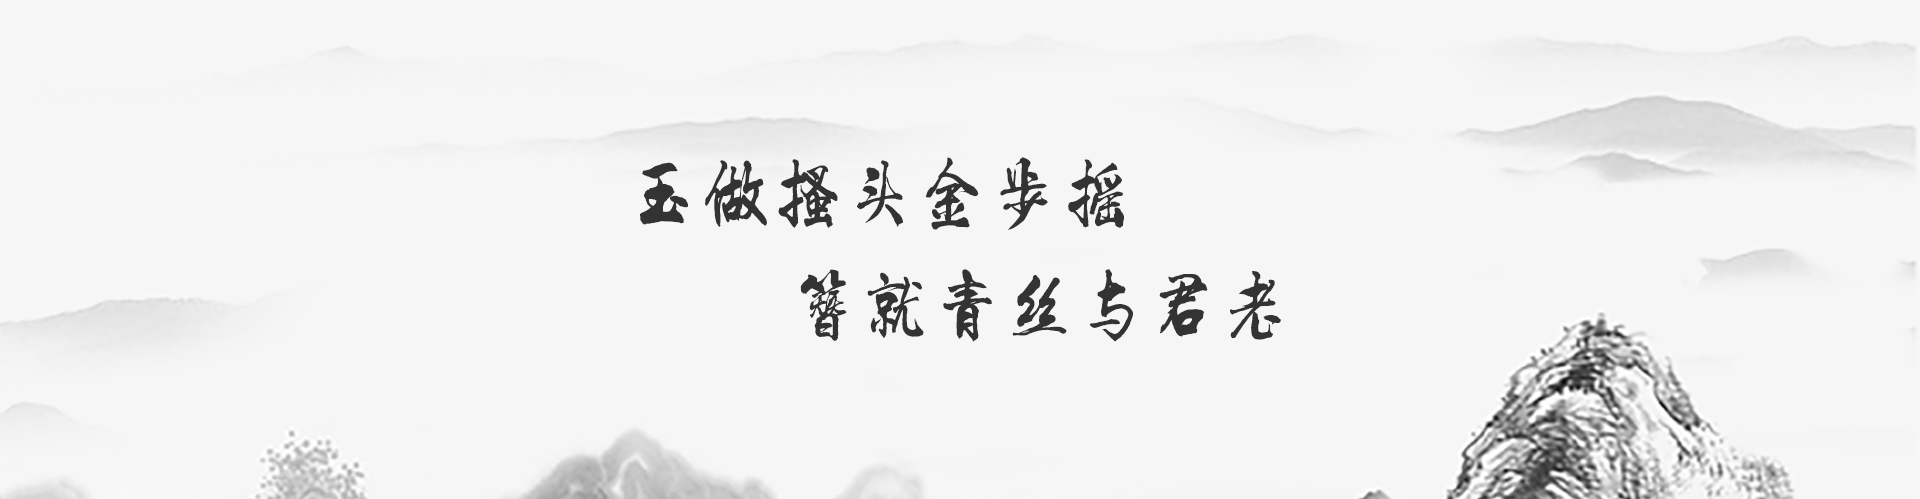 玉做搔头金步摇
簪就青丝与君老